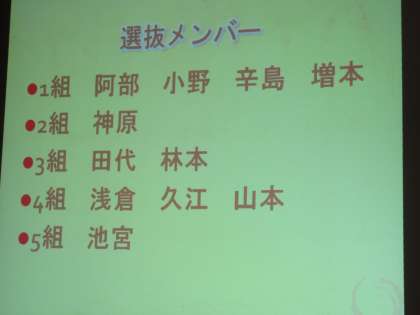 選抜メンバー
●1組 阿部 小野 辛島 増本
●2組 神原
●3組 田代 林本
●4組 浅倉 久江 山本
●5組 池宮